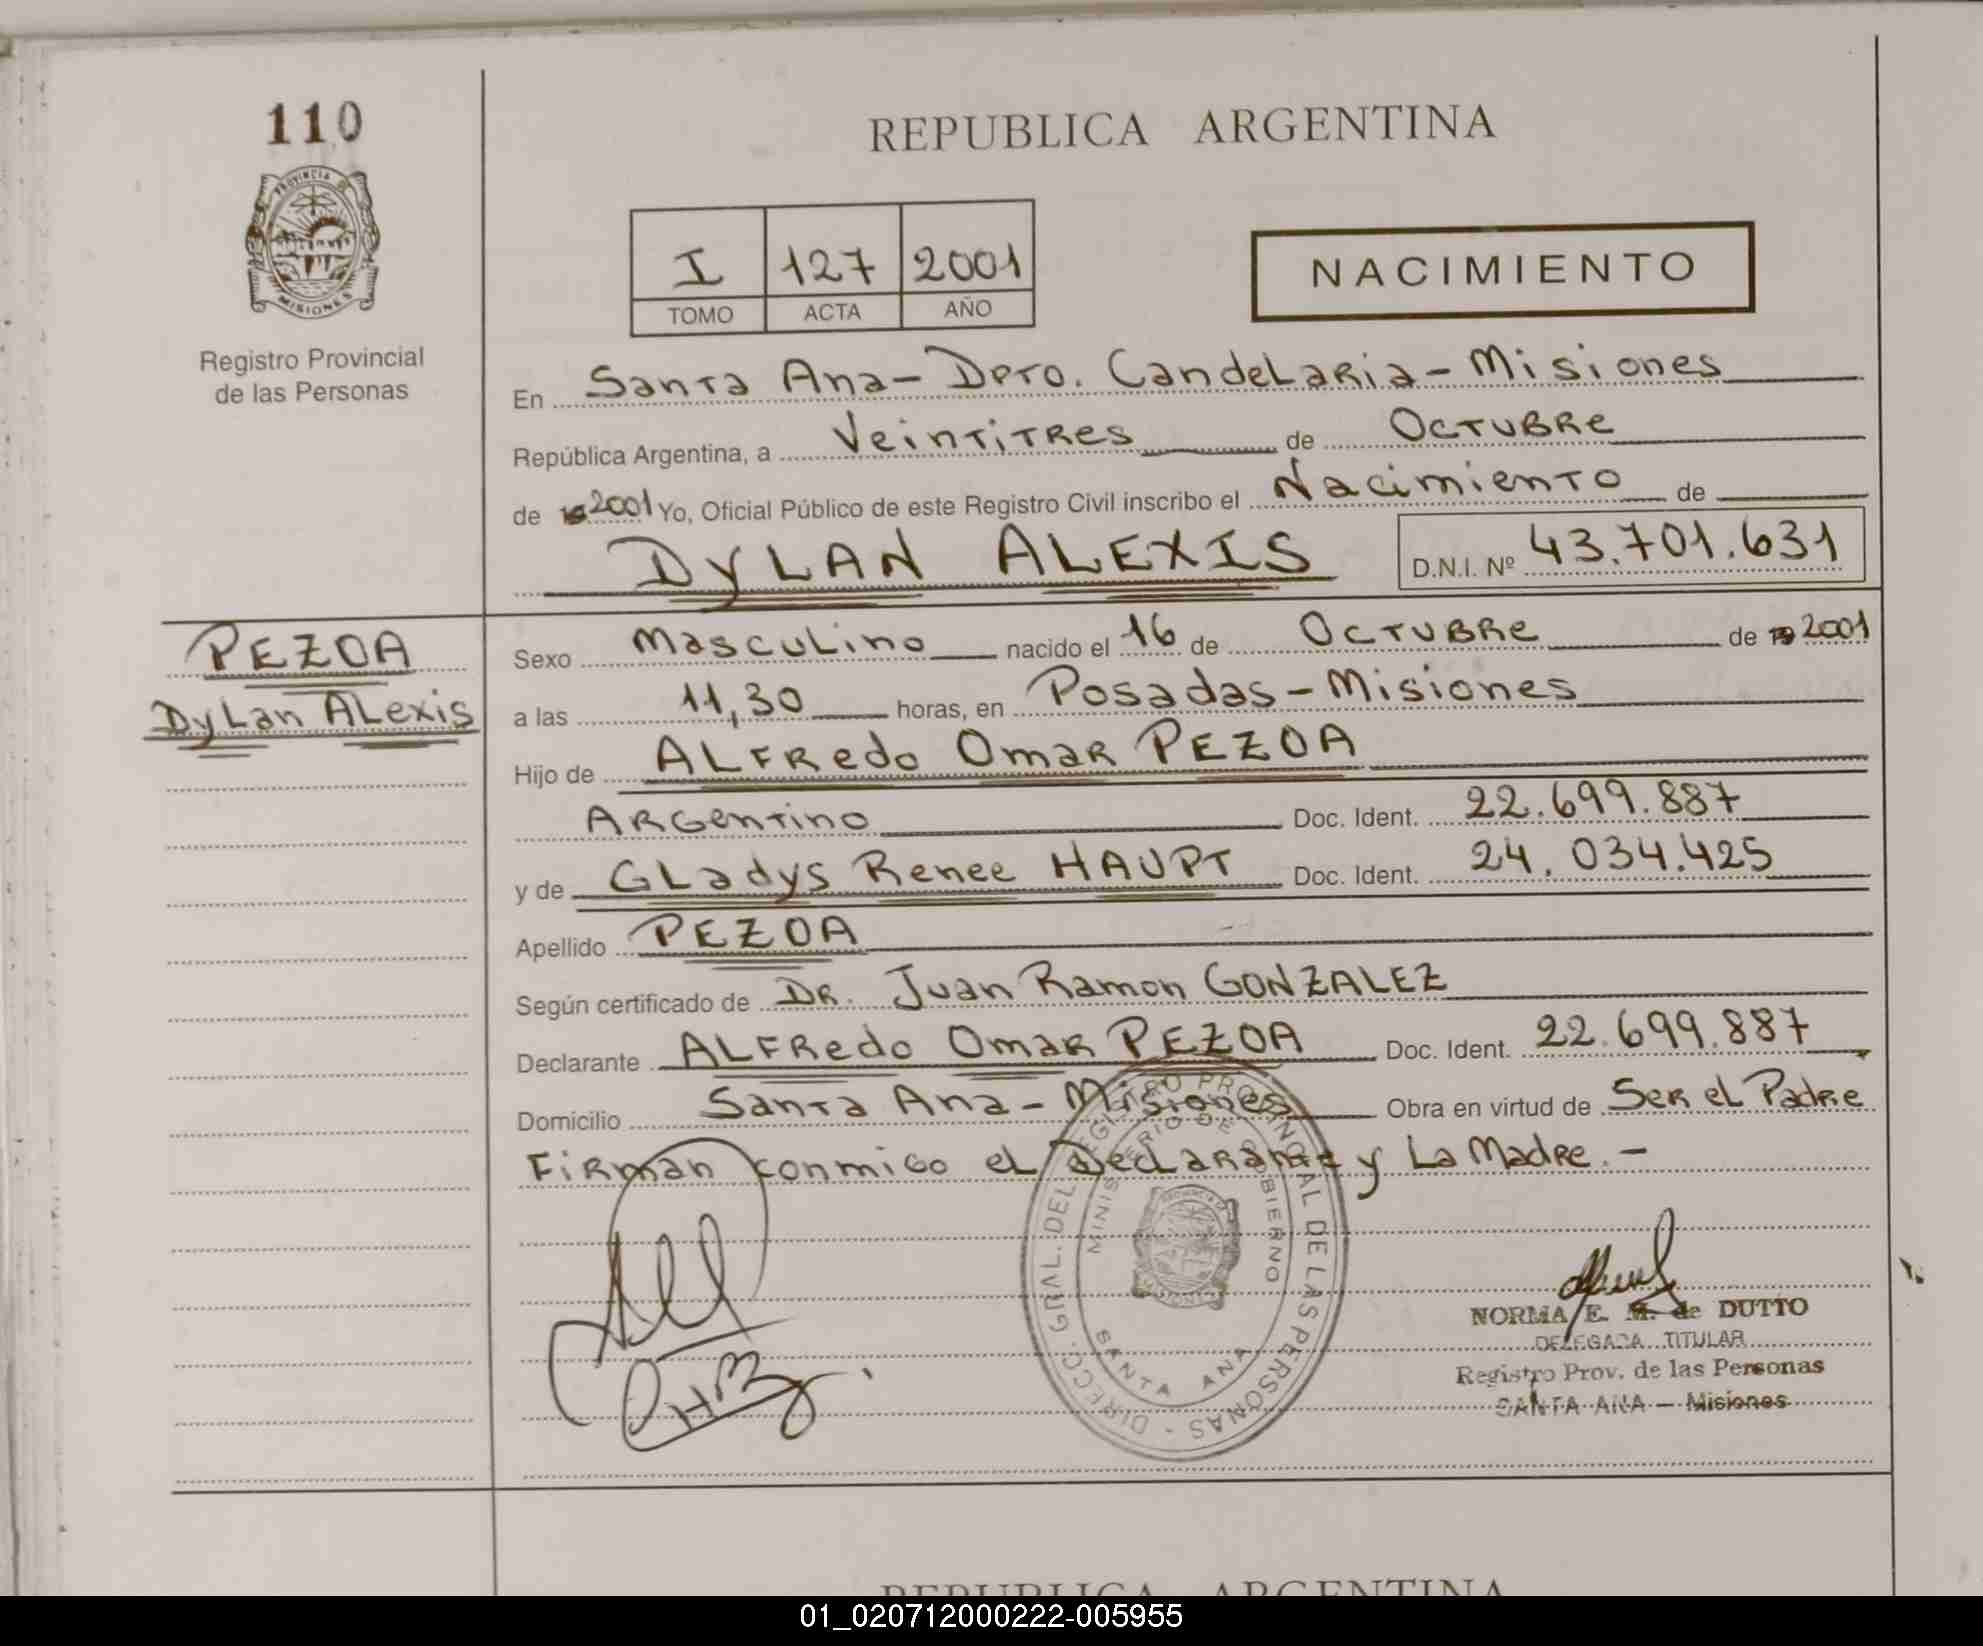 110
REPUBLICA ARGENTINA
PROVINCIA DE
MISIONES
Registro Provincial
de las Personas
I 127 2001
TOMO ACTA AÑO
NACIMIENTO
En Santa Ana - Dpto. Candelaria - Misiones
República Argentina, a Veintitres de Octubre
de 2001 Yo, Oficial Público de este Registro Civil inscribo el Nacimiento de
DYLAN ALEXIS D.N.I. Nº 43.701.631
PEZOA
Dylan Alexis
Sexo Masculino nacido el 16 de Octubre de 2001
a las 11,30 horas, en Posadas - Misiones
Hijo de Alfredo Omar PEZOA
Argentino Doc. Ident. 22.699.887
y de Gladys Renee HAUPT Doc. Ident. 24.034.425
Apellido PEZOA
Según certificado de Dr. Juan Ramon GONZALEZ
Declarante Alfredo Omar PEZOA Doc. Ident. 22.699.887
Domicilio Santa Ana - Misiones Obra en virtud de Ser el Padre
Firman conmigo el Declarante y La Madre. -
DIRECC. GRAL. DEL REGISTRO PROVINCIAL DE LAS PERSONAS -
MINISTERIO DE GOBIERNO
SANTA ANA
NORMA E. M. de DUTTO
DELEGADA TITULAR
Registro Prov. de las Personas
SANTA ANA - Misiones
REPUBLICA ARGENTINA
01_020712000222-005955